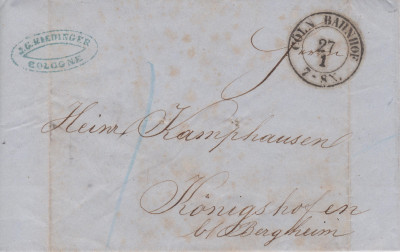 J. G. RIEDINGER
COLOGNE
CÖLN BAHNHOF
27
1
7-8 N.
Heinr Kamphausen
Königshofen
b/ Bergheim